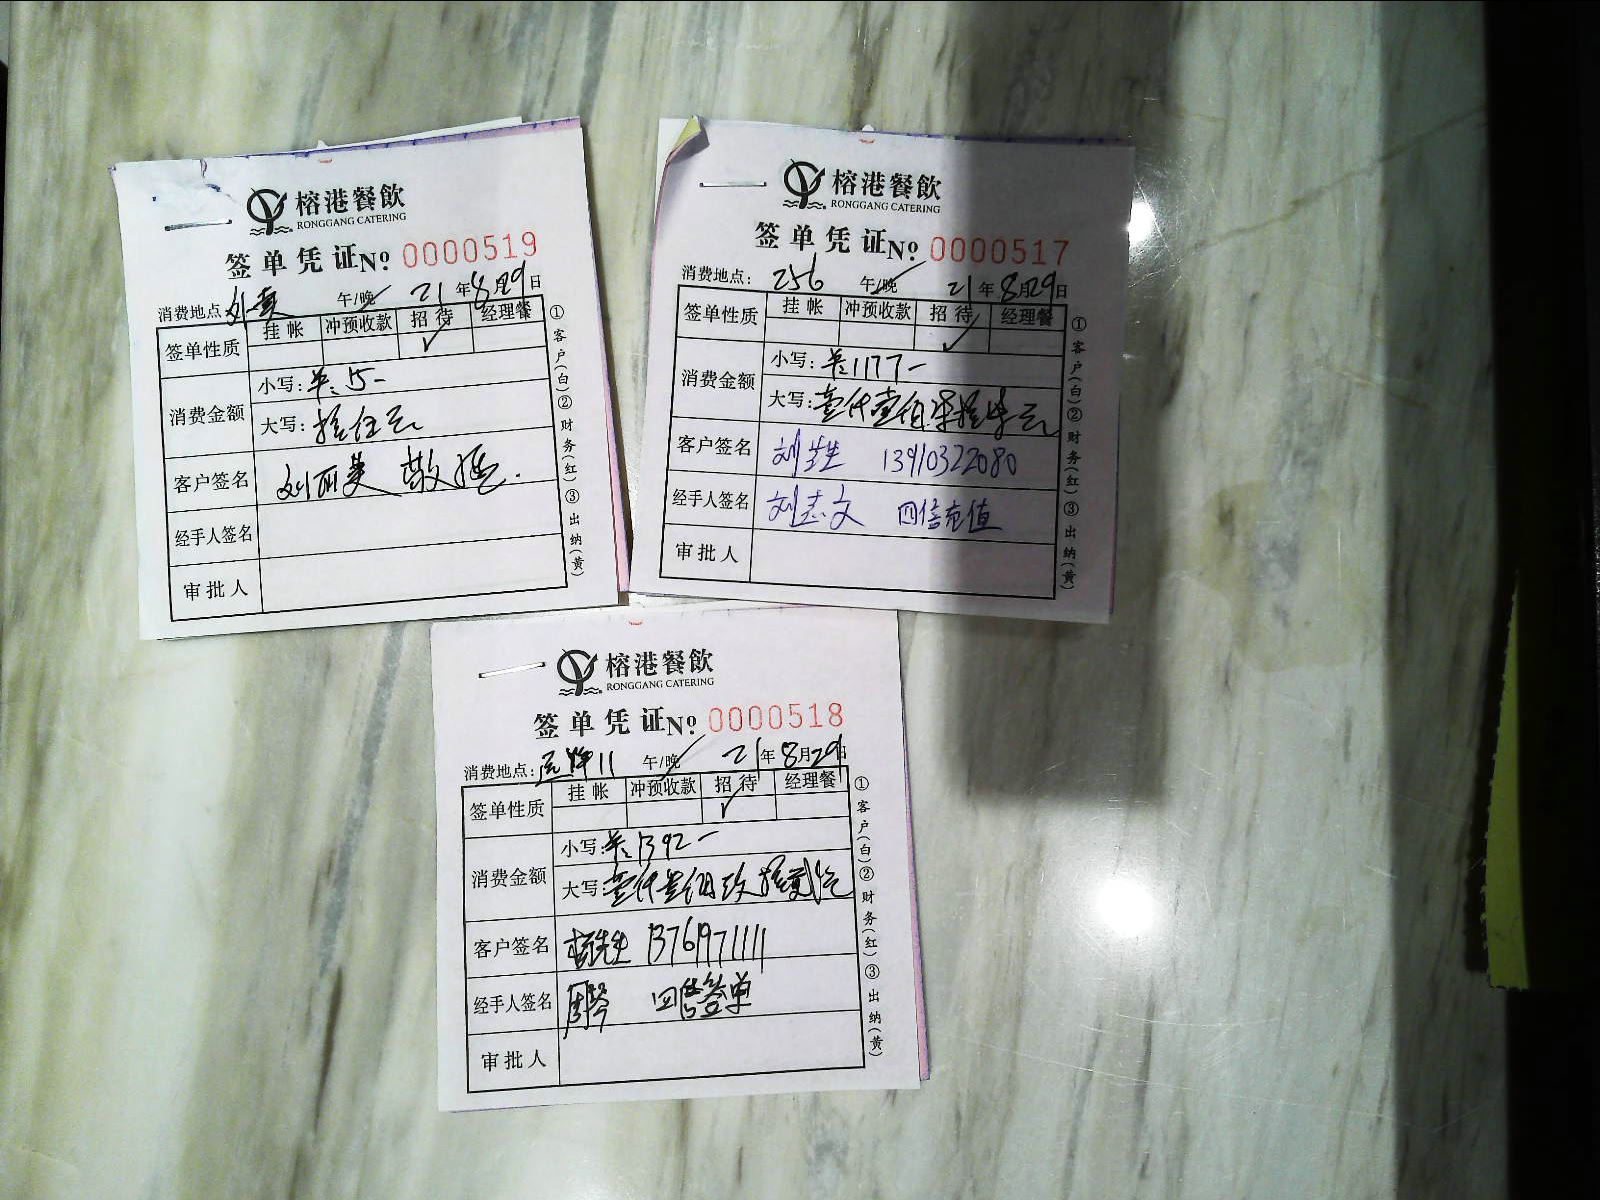 榕港餐飲
RONGGANG CATERING
签单凭证 No. 0000519
消费地点: 外卖 午/晚 21年8月29日
签单性质 挂帐 冲预收款 招待 经理餐
✓
消费金额 小写: 单: 15-
大写: 拾伍元
客户签名 刘丽英
经手人签名
审批人
①客户(白)②财务(红)③出纳(黄)
榕港餐飲
RONGGANG CATERING
签单凭证 No. 0000517
消费地点: 256 午/晚 21年8月29日
签单性质 挂帐 冲预收款 招待 经理餐
✓
消费金额 小写: 单: 1177-
大写: 壹仟壹佰柒拾柒元
客户签名 刘先生 13910322080
经手人签名 刘志文 四倍充值
审批人
①客户(白)②财务(红)③出纳(黄)
榕港餐飲
RONGGANG CATERING
签单凭证 No. 0000518
消费地点: 11 午/晚 21年8月29日
签单性质 挂帐 冲预收款 招待 经理餐
✓
消费金额 小写: 单: 1392-
大写: 壹仟叁佰玖拾贰元
客户签名 杨先生 13761971111
经手人签名 四倍签单
审批人
①客户(白)②财务(红)③出纳(黄)